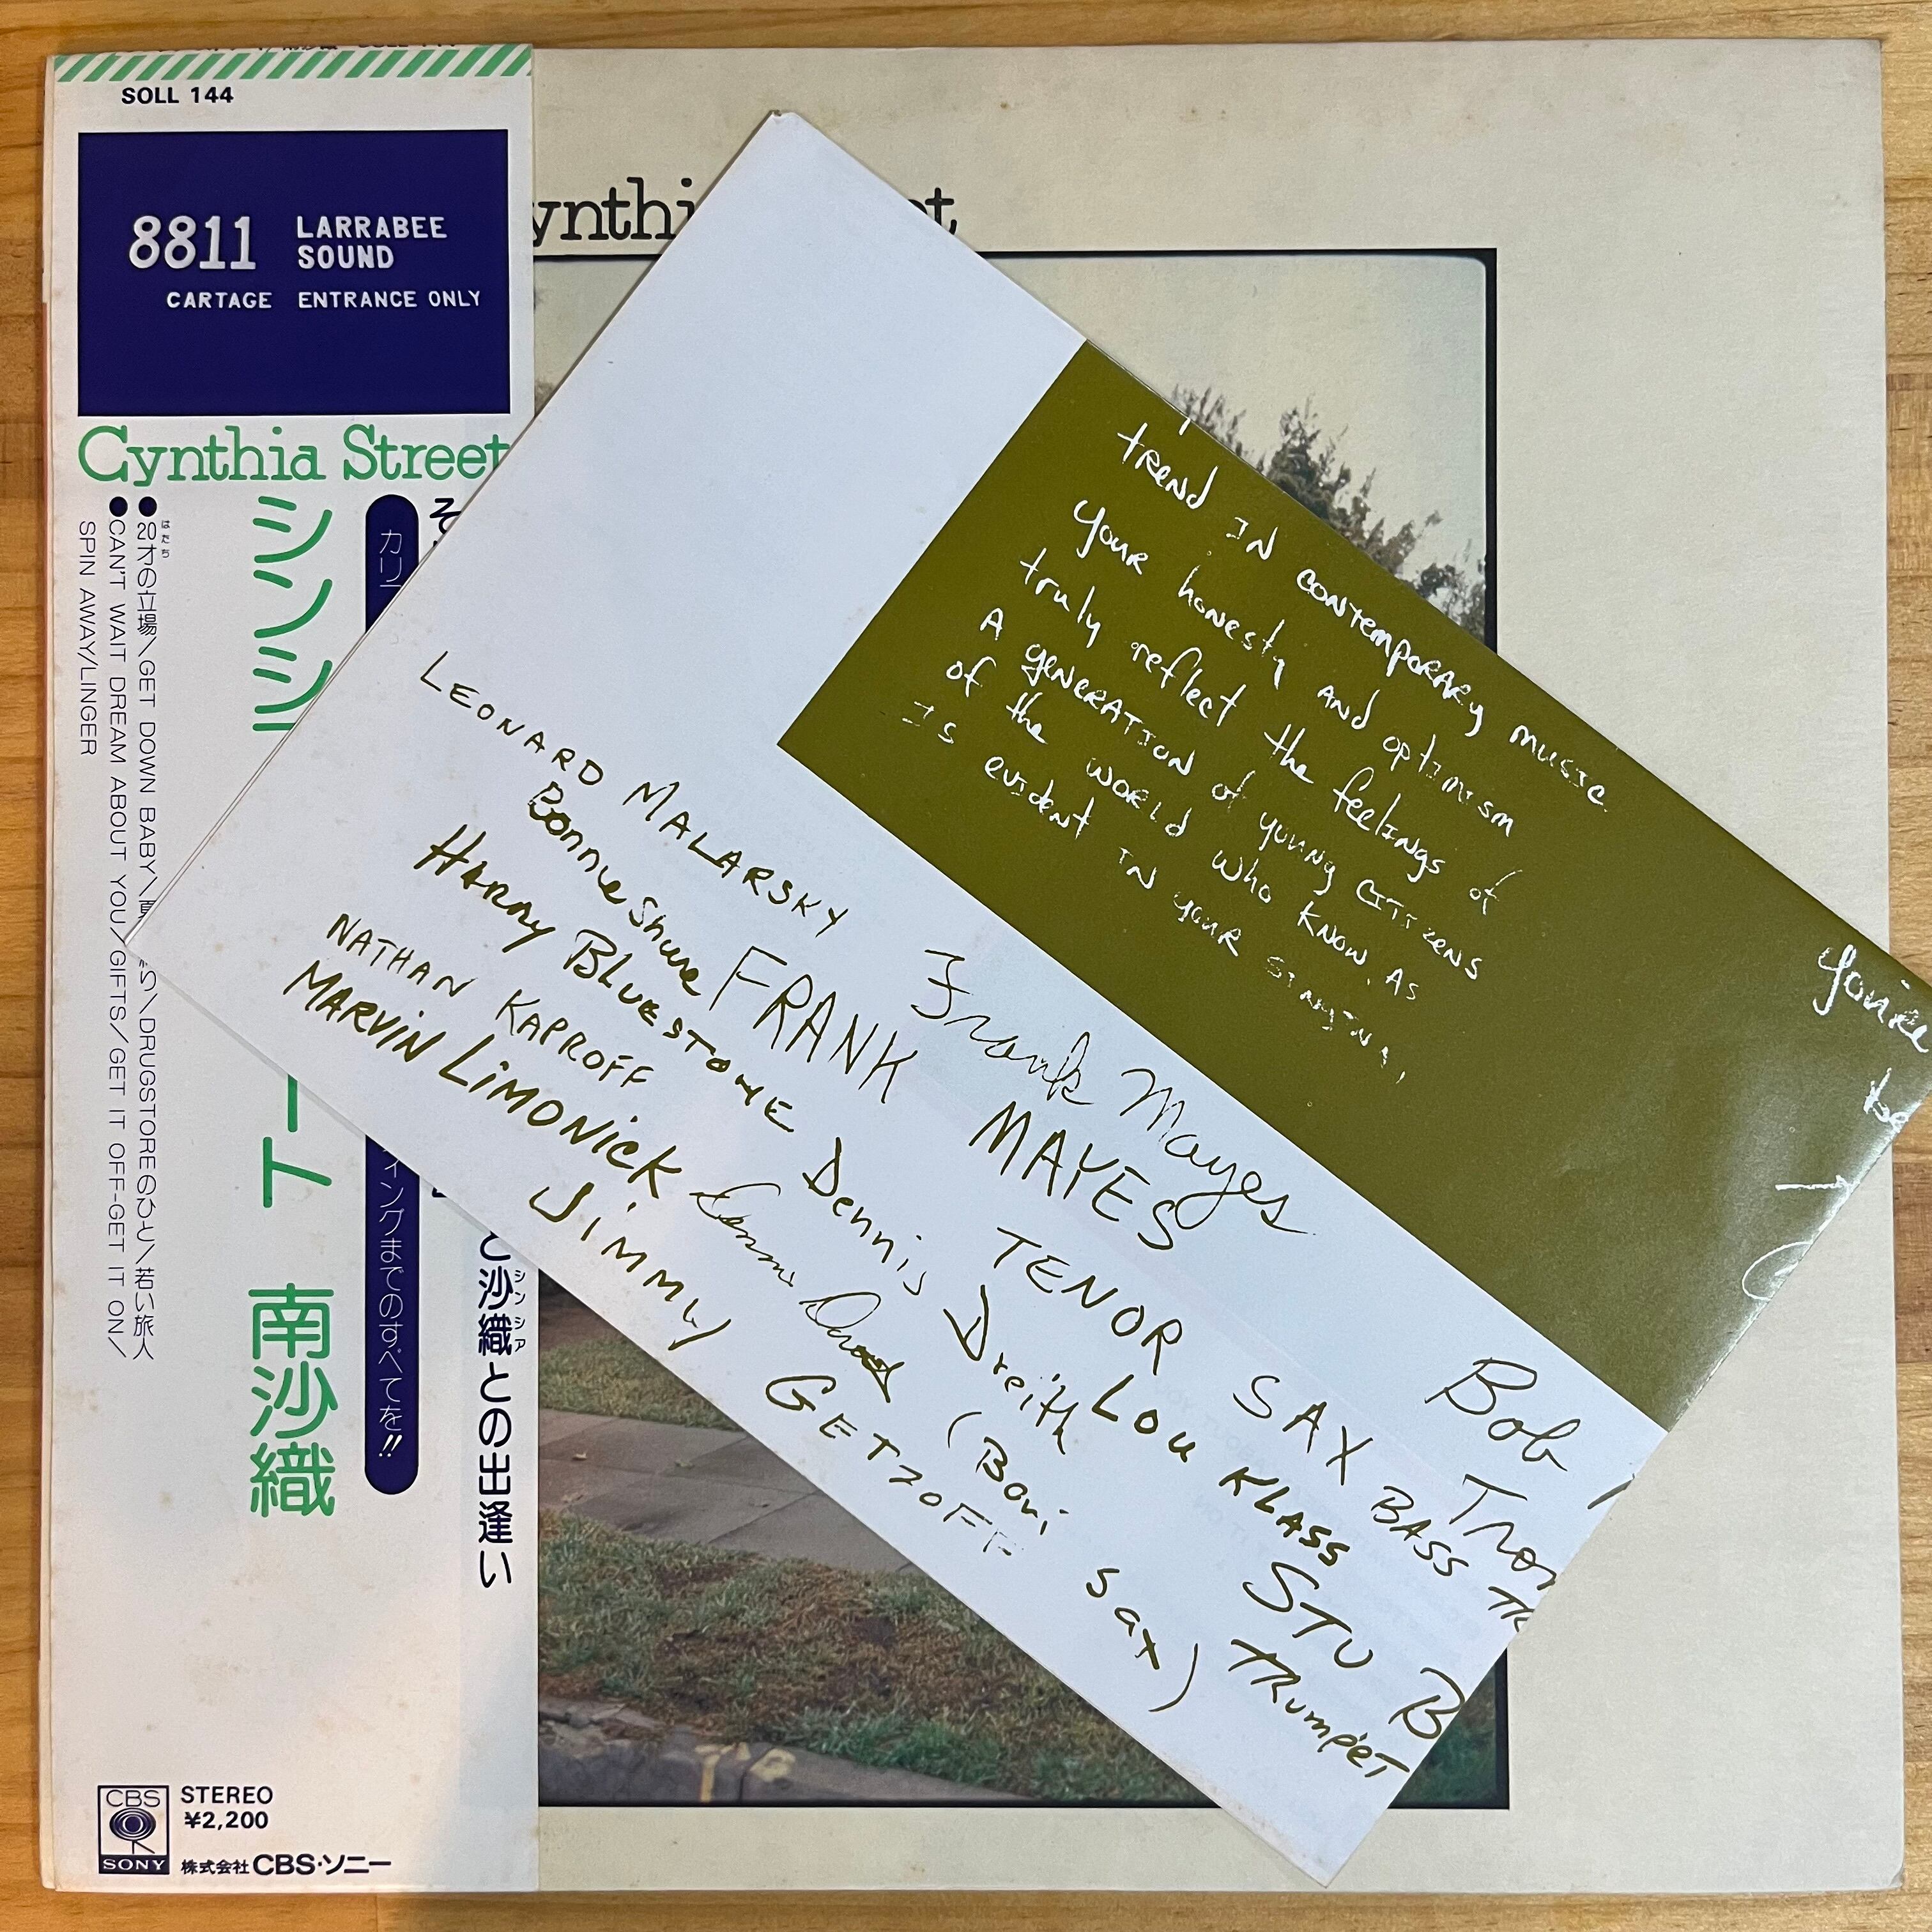 SOLL 144
8811 LARRABEE
SOUND
CARTAGE ENTRANCE ONLY
Cynthia Street
シンシ
ート 南沙織
カリ
ィングまでのすべてを!!
そ
と沙織との出逢い
シンシア
はたち
●20才の立場/GET DOWN BABY/
/DRUGSTOREのひと/若い旅人
●CAN'T WAIT DREAM ABOUT YOU/GIFTS/GET IT OFF-GET IT ON/
SPIN AWAY/LINGER
CBS
SONY
STEREO
¥2,200
株式会社 CBS・ソニー
ynthi
et
trend in contemporary music
your honesty and optimism
truly reflect the feelings of
A generation of young citizens
of the world who know. As
Is evident in your singing,
You're
LEONARD MALARSKY
Bonnie Shure
HARRY BLUESTONE
NATHAN KAPROFF
MARVIN LIMONICK
JIMMY GETZOFF
Frank Mayes
FRANK MAYES
TENOR SAX
Dennis Dreith
(Bari sax)
Lou KLASS
BASS
Bob
STU B
TRUMPET